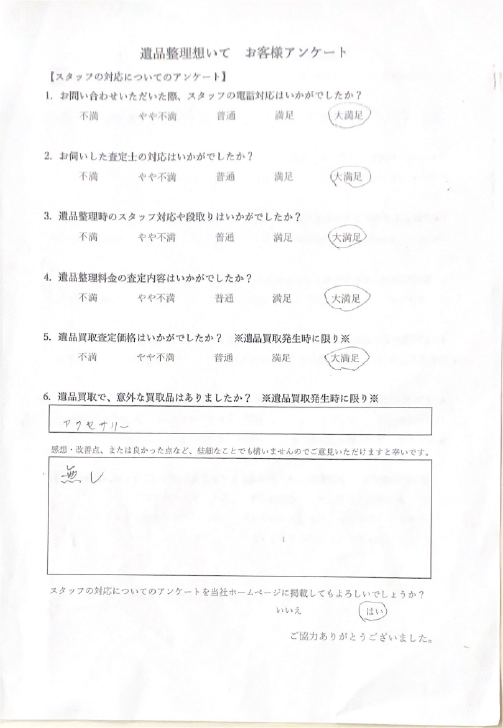 遺品整理想いて　お客様アンケート
【スタッフの対応についてのアンケート】
1. お問い合わせいただいた際、スタッフの電話対応はいかがでしたか？
不満　やや不満　普通　満足　大満足
2. お伺いした査定士の対応はいかがでしたか？
不満　やや不満　普通　満足　大満足
3. 遺品整理時のスタッフ対応や段取りはいかがでしたか？
不満　やや不満　普通　満足　大満足
4. 遺品整理料金の査定内容はいかがでしたか？
不満　やや不満　普通　満足　大満足
5. 遺品買取査定価格はいかがでしたか？　※遺品買取発生時に限り※
不満　やや不満　普通　満足　大満足
6. 遺品買取で、意外な買取品はありましたか？　※遺品買取発生時に限り※
アクセサリー
感想・改善点、または良かった点など、些細なことでも構いませんのでご意見いただけますと幸いです。
無し
スタッフの対応についてのアンケートを当社ホームページに掲載してもよろしいでしょうか？
いいえ　はい
ご協力ありがとうございました。